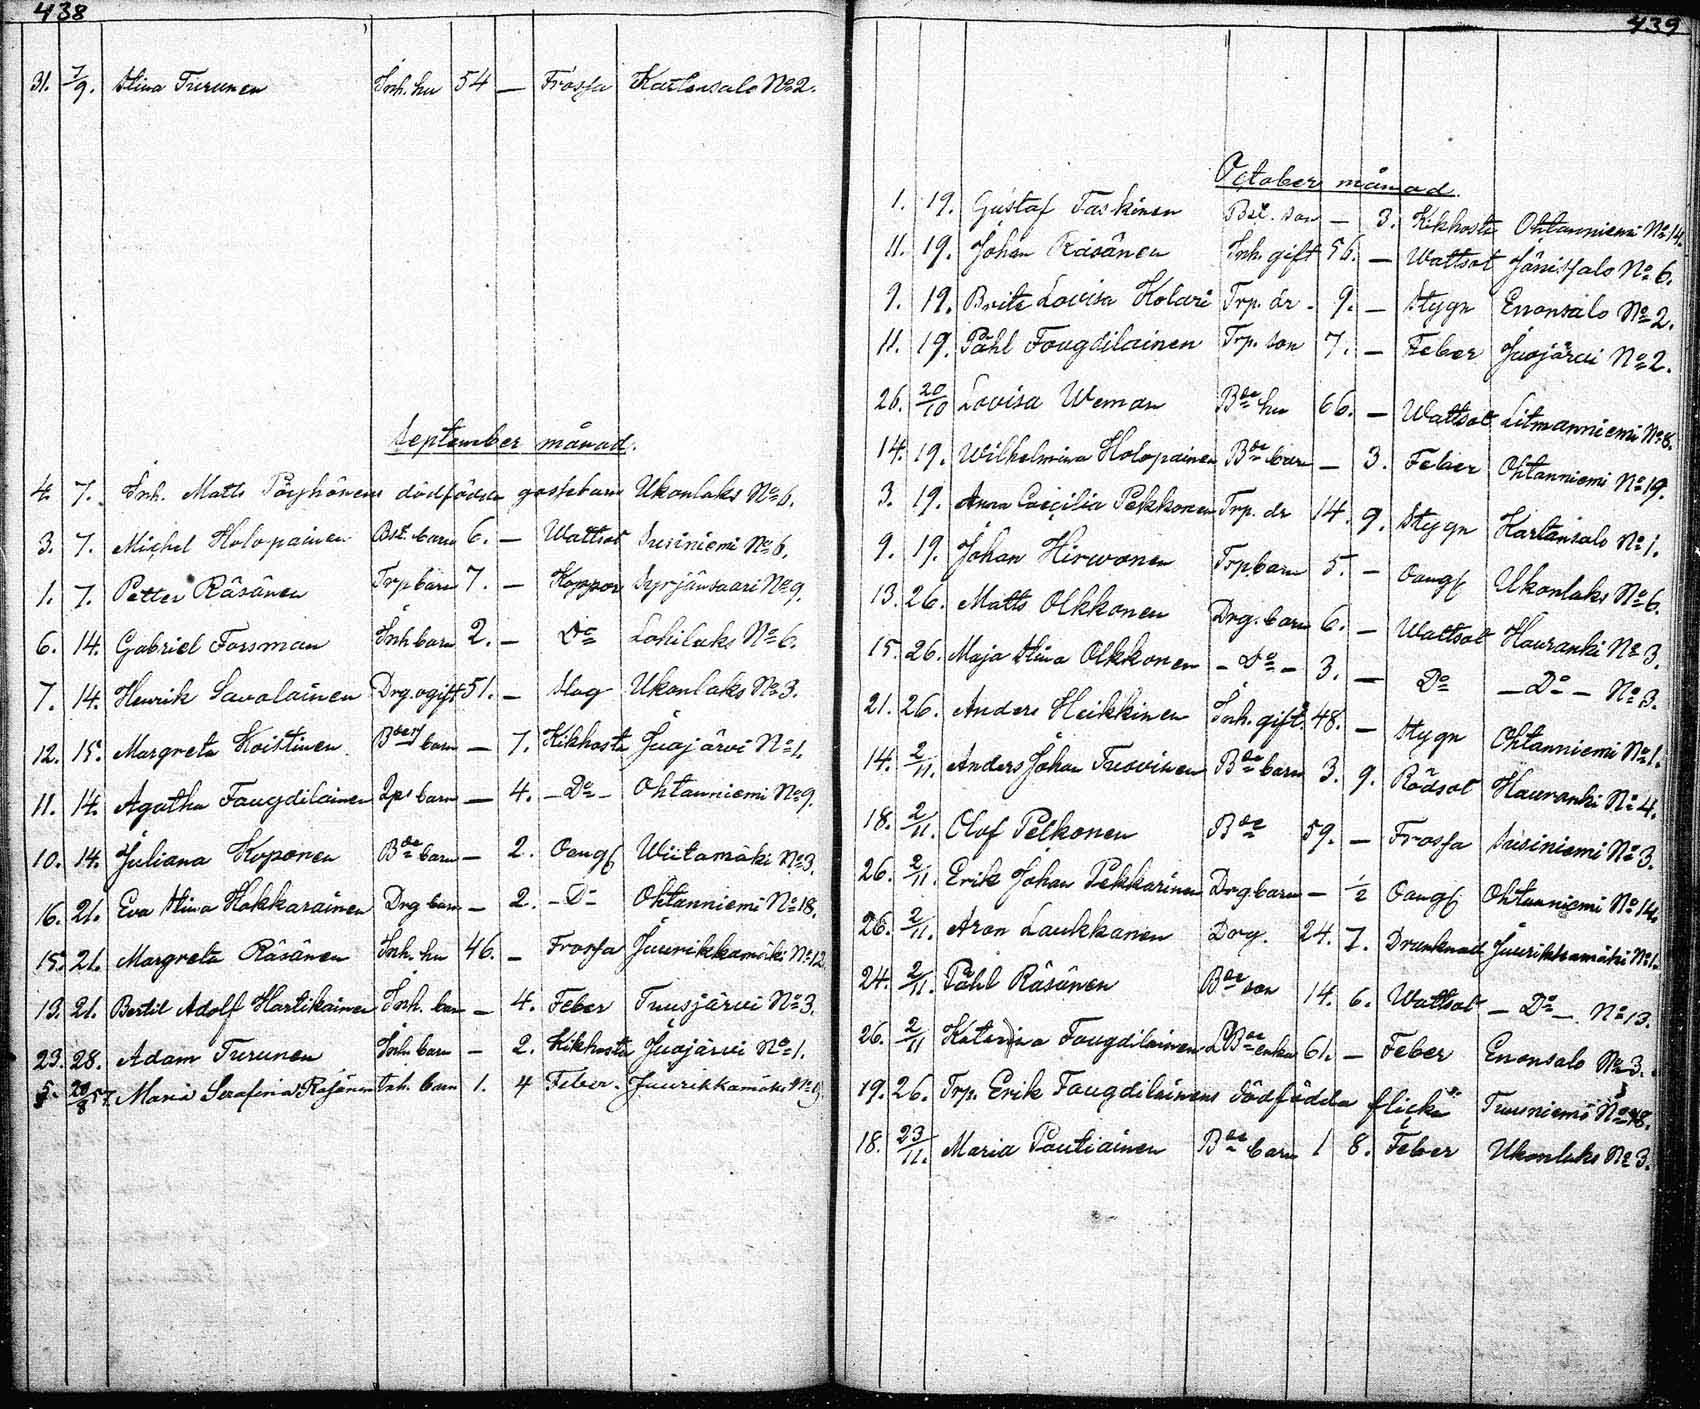 438
31. 7/9. Stina Turunen Inh. hu 54 — Frossa Kartansalo No 2.
September månad.
4. 7. Inh. Matts Pöyhönens dödfödda gossebarn Ukonlaks No 6.
3. 7. Michel Holopainen Bse. barn 6. — Wattsot Susiniemi No 6.
1. 7. Petter Räsänen Trp barn 7. — Koppor Syrjänsaari No 9.
6. 14. Gabriel Forsman Inh barn 2. — Do Lohilaks No 6.
7. 14. Henrik Savolainen Drg. ogift 51. — Slag Ukonlaks No 3.
12. 15. Margreta Koistinen barn — 7. Kikhosta Juojärvi No 1.
11. 14. Agatha Fougdilainen barn — 4. — Do — Ohtanniemi No 9.
10. 14. Juliana Koponen Bde barn — 2. Oangf Wiitamäki No 3.
16. 21. Eva Stina Hokkarainen Drg barn — 2. — Do Ohtanniemi No 18.
15. 21. Margreta Räsänen Inh. hu 46. — Frossa Juurikkamäki No 12
13. 21. Bertil Adolf Hartikainen Inh. barn — 4. Feber Tuusjärvi No 3.
23. 28. Adam Turunen Inh barn — 2. Kikhosta Juojärvi No 1.
5. Maria Serafina Räsänen Inh. barn 1. 4 Feber. Juurikkamäki No 9.
439
October månad.
1. 19. Gustaf Taskinen Bse. son — 3. Kikhosta Ohtanniemi No 14.
11. 19. Johan Räsänen Inh. gift 56. — Wattsot Jänissalo No 6.
9. 19. Brita Lovisa Kolari Trp. dr. 9. — Stygn Enonsalo No 2.
11. 19. Påhl Fougdilainen Trp. son 7. — Feber Juojärvi No 2.
26. 20/10 Lovisa Weman Bde hu 66. — Wattsot Litmanniemi No 8.
14. 19. Wilhelmina Holopainen Bde barn — 3. Feber Ohtanniemi No 19.
3. 19. Anna Caecilia Pekkonen Trp. dr 14. 9. Stygn Kartansalo No 1.
9. 19. Johan Hirwonen Trp. barn 5. — Oangf Ukonlaks No 6.
13. 26. Matts Olkkonen Drg. barn 6. — Wattsot Hauranki No 3.
15. 26. Maja Stina Olkkonen — Do — 3. — Do — Do — No 3.
21. 26. Anders Heikkinen Inh. gift 48. — Stygn Ohtanniemi No 1.
14. 2/11. Anders Johan Tuovinen Bde barn 3. 9. Rödsot Hauranki No 4.
18. 2/11. Olof Pelkonen Bde 59. — Frossa Susiniemi No 3.
26. 2/11. Erik Johan Pekkarinen Drg. barn — 1/2 Oangf Ohtanniemi No 14.
26. 2/11. Aron Laukkanen Drg. 24. 7. Drunknad Juurikkamäki No 1.
24. 2/11. Påhl Räsänen Bde son 14. 6. Wattsot — Do — No 13.
26. 2/11 Katarina Fougdilainen enka 61. — Feber Enonsalo No 3.
19. 26. Trp. Erik Fougdilainens dödfödda flicka Tuusniemi No 18.
18. 23/11. Maria Pautiainen Bde barn 1 8. Feber Ukonlaks No 3.